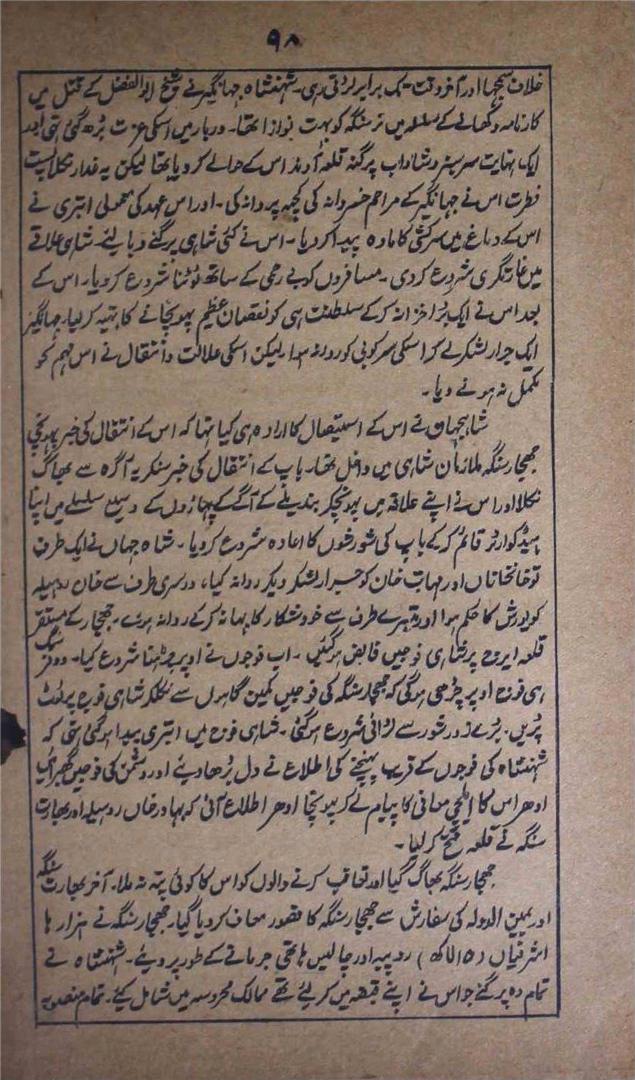 ۹۸
خلاف سمجھا اور آخر وقت تک برابر لڑتی رہی۔ شہنشاہ جہانگیر نے شیخ ابوالفضل کے قتل میں
کارنامہ دکھانے کے سلسلہ میں نرسنگہ کو بہت نوازا تھا۔ دربار میں اسکی عزت بڑھ گئی تھی اور
ایک نہایت سرسبز و شاداب پرگنہ قلعہ اس کے حوالے کر دیا تھا لیکن یہ غدار
فطرت اس نے جہانگیر کے مراحم خسروانہ کی کچھ پرواہ نہ کی۔ اور اس عہد کی معمولی ابتری نے
اس کے دماغ میں سرکشی کا مادہ پیدا کر دیا۔ اس نے کئی شاہی پرگنے دبا لئے۔ شاہی علاقے
میں غارتگری شروع کر دی۔ مسافروں کو بے رحمی کے ساتھ لوٹنا شروع کر دیا۔ اس کے
بعد اس نے ایک بڑا خزانہ کر کے سلطنت ہی کو نقصان عظیم پہونچانے کا تہیہ کر لیا۔ جہانگیر
ایک جرار لشکر لے کر اسکی سرکوبی کو روانہ ہوا لیکن اسکی علالت و انتقال نے اس مہم کو
مکمل نہ ہونے دیا۔
شاہجہاں نے اس کے استیصال کا ارادہ ہی کیا تھا کہ اس کے انتقال کی خبر پہونچی
جھجار سنگہ ملازمان شاہی میں داخل تھا۔ باپ کے انتقال کی خبر سنکر یہ آگرہ سے بھاگ
نکلا اور اس نے اپنے علاقہ میں پہونچکر بندیلے کے آگے کے پہاڑوں کے وسیع سلسلے میں اپنا
ہیڈ کوارٹر قائم کر کے باپ کی شورشوں کا اعادہ شروع کر دیا۔ شاہ جہاں نے ایک طرف
تو خانخاناں اور مہابت خان کو جرار لشکر دیکر روانہ کیا، دوسری طرف سے خان روہیلہ
کو یورش کا حکم ہوا اور تیسرے طرف سے خود شکار کا بہانہ کر کے روانہ ہوئے۔ جھجار کے مستقر
قلعہ ایرج پر شاہی فوجیں قابض ہو گئیں۔ اب فوجوں نے اوپر چڑھنا شروع کیا۔ دو فرسنگ
ہی فوج اوپر چڑھی ہوگی کہ جھجار سنگہ کی فوجیں کمین گاہوں سے نکلکر شاہی فوج پر ٹوٹ
پڑیں۔ بڑے زور شور سے لڑائی شروع ہو گئی۔ شاہی فوج میں ابتری پیدا ہو گئی تھی کہ
شہنشاہ کی فوجوں کے قریب پہنچنے کی اطلاع نے دل بڑھا دیئے اور دشمن کی فوجیں گھبرا گئیں
ادھر اس کا ایلچی معافی کا پیام لے کر پہونچا ادھر اطلاع آئی کہ بہادر خاں روہیلہ اور بھارت
سنگہ نے قلعہ فتح کر لیا۔
جھجار سنگہ بھاگ گیا اور تعاقب کرنے والوں کو اس کا کوئی پتہ نہ ملا۔ آخر بھارت سنگہ
اور یمین الدولہ کی سفارش سے جھجار سنگہ کا قصور معاف کر دیا گیا۔ جھجار سنگہ نے ہزار ہا
اشرفیاں (۱۵ لاکھ) روپیہ اور چالیس ہاتھی جرمانے کے طور پر دیئے۔ شہنشاہ نے
تمام وہ پرگنے جو اس نے اپنے قبضہ میں کر لیئے تھے ممالک محروسہ میں شامل کیئے۔ تمام منصوبہ